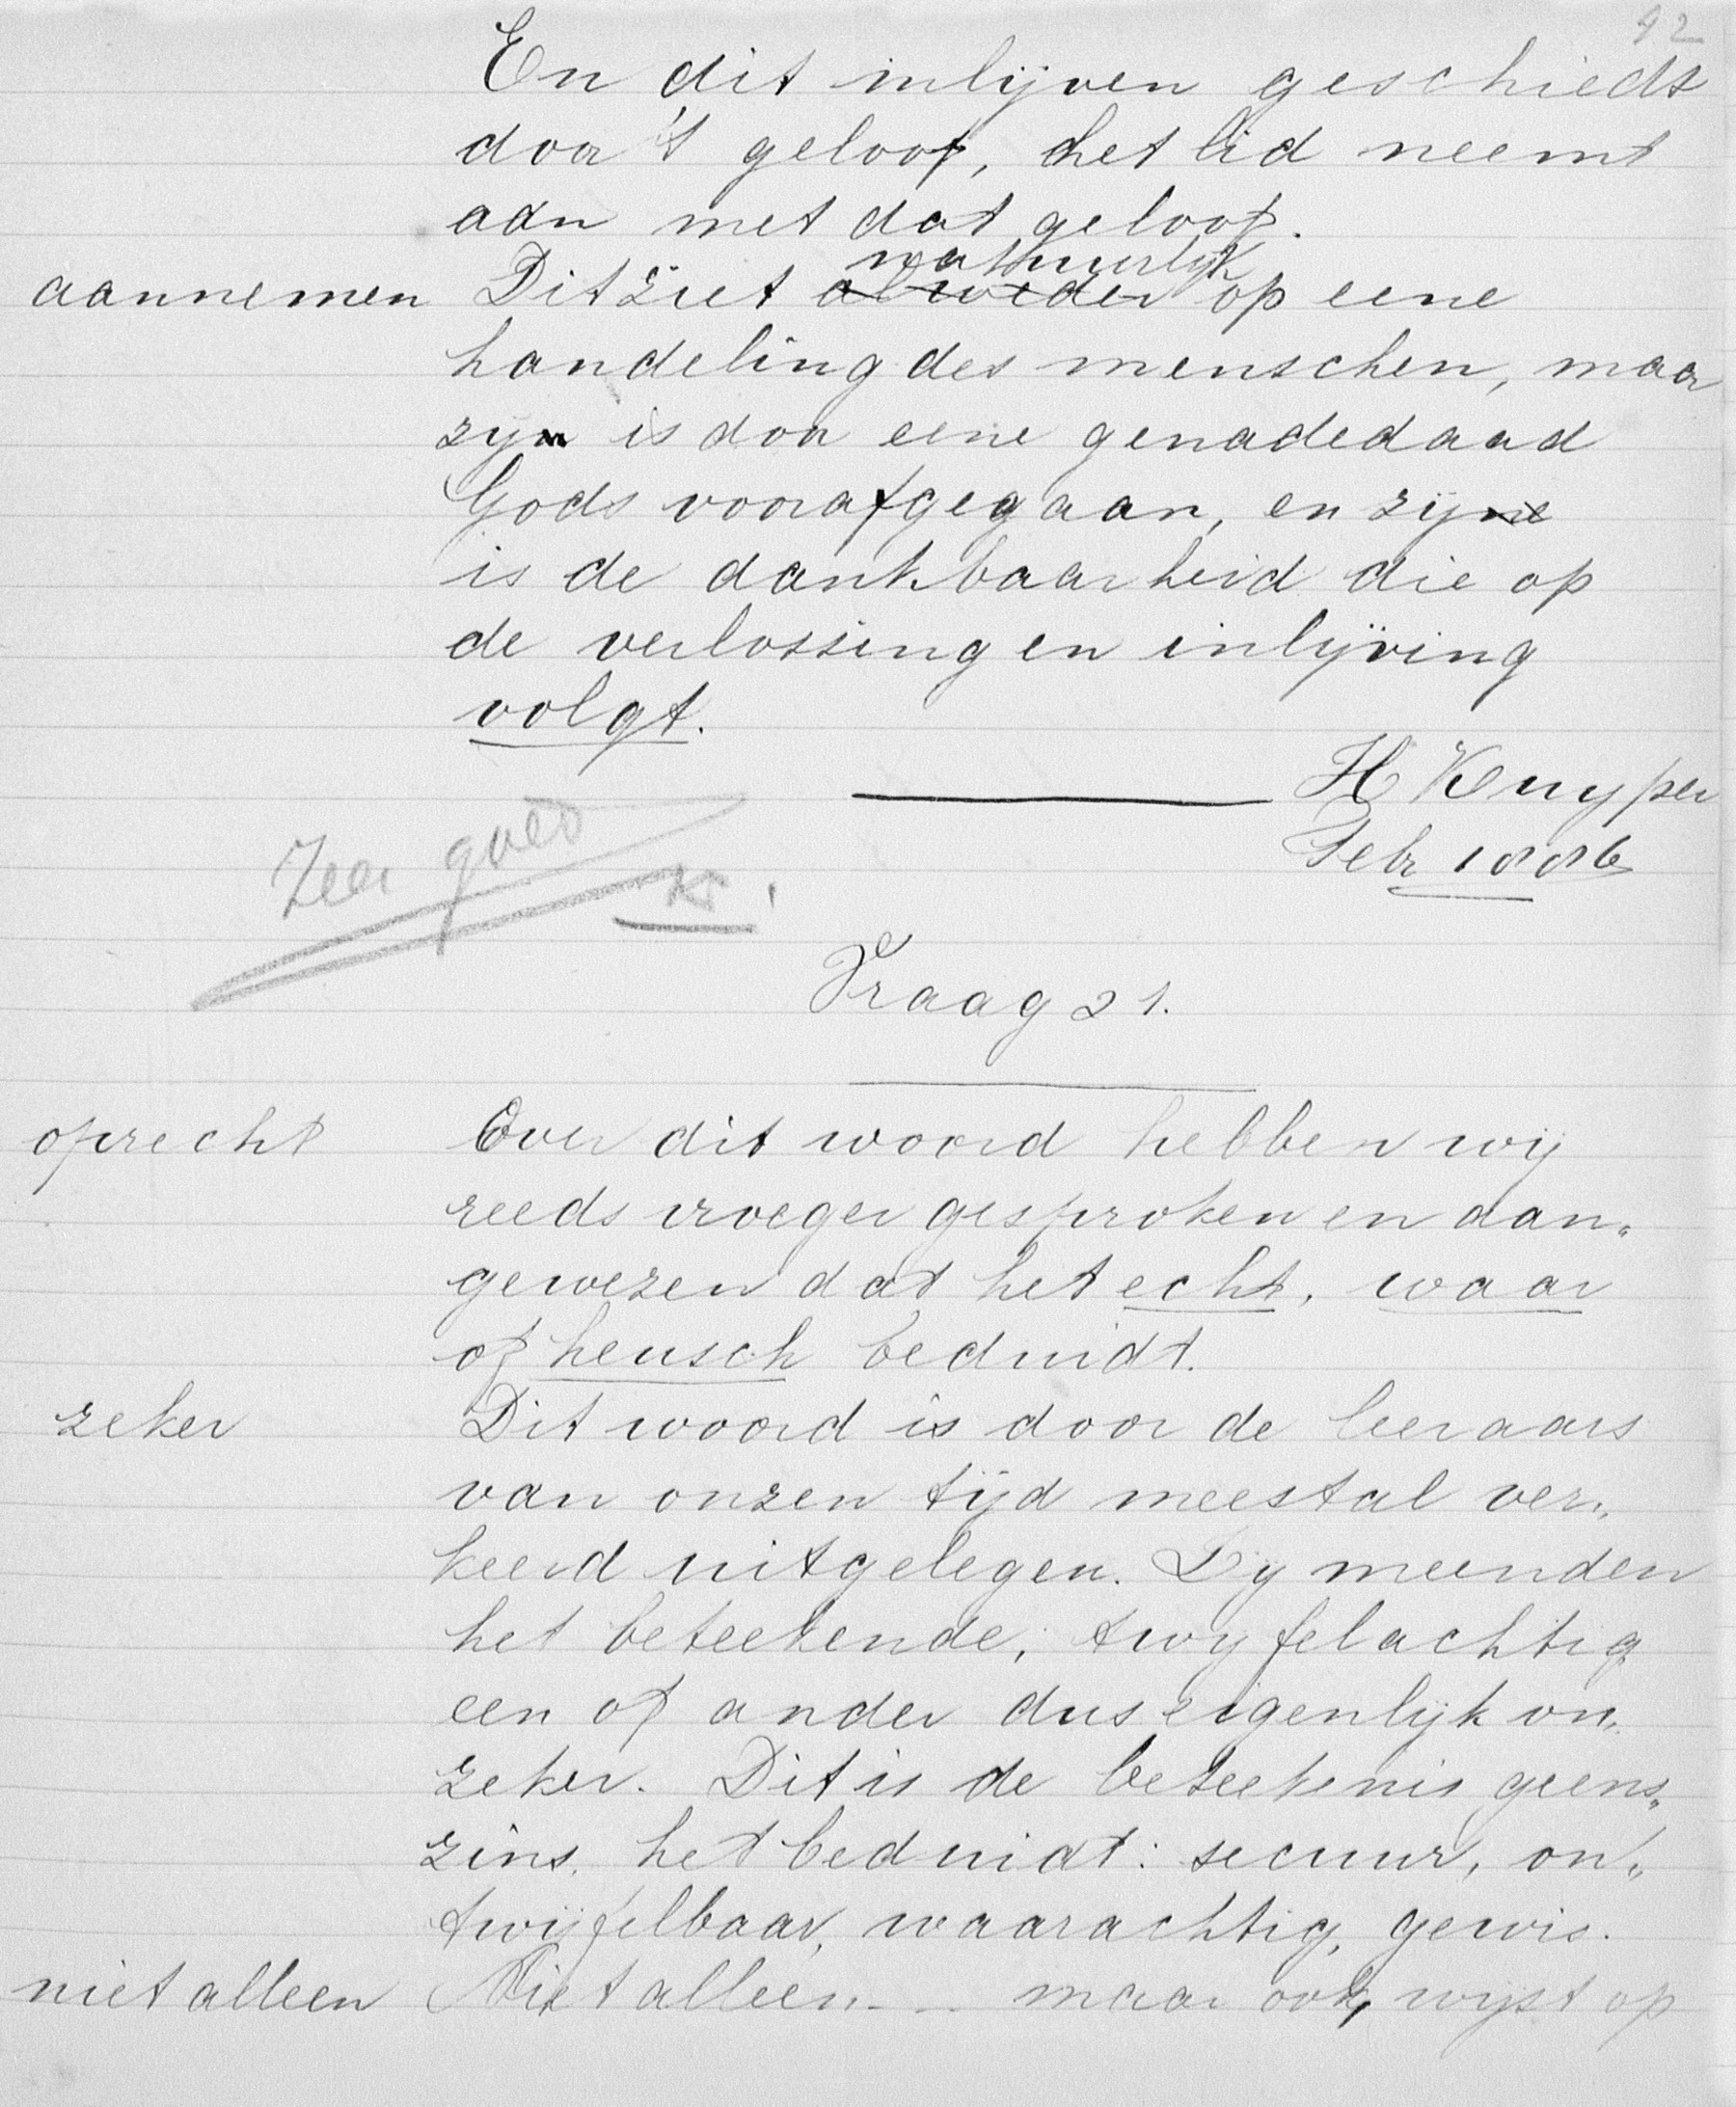 92
En dit inlijven geschiedt
door 't geloof, het lid neemt
aan met dat geloof.
natuurlijk
aannemen Dit ziet alweder op eene
handeling des menschen, maar
zij is door eene genadedaad
Gods voorafgegaan, en zij
is de dankbaarheid die op
de verlossing en inlijving
volgt.
H Kuyper
Febr 1886
Zeer goed
K.
Vraag 21.
oprecht Over dit woord hebben wij
reeds vroeger gesproken en aan„
gewezen dat het echt, waar
of heusch beduidt.
zeker Dit woord is door de leeraars
van onzen tijd meestal ver„
keerd uitgelegen. Zy meenden
het beteekende, twyfelachtig
een of ander dus eigenlijk on„
zeker. Dit is de beteekenis geens„
zins, het beduidt: secuur, on„
twijfelbaar, waarachtig, gewis.
niet alleen Niet alleen - - maar ook, wijst op